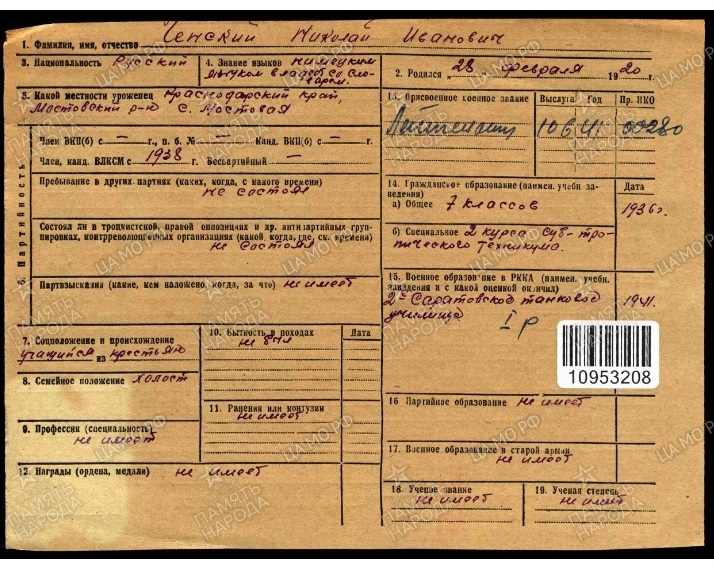 1. Фамилия, имя, отчество Ченский Николай Иванович
3. Национальность Русский
4. Знание языков немецким языком владеет со словарем.
2. Родился 28 февраля 1920 г.
5. Какой местности уроженец Краснодарский край,
Мостовский р-н с. Мостовая
13. Присвоенное военное звание Выслуга Год Пр. НКО
Лейтенант 10 6 41 00280
6. Партийность
Член ВКП(б) с — г., п. б. № — Канд. ВКП(б) с — г.
Член, канд. ВЛКСМ с 1938 г. Беспартийный —
Пребывание в других партиях (каких, когда, с какого времени)
не состоял
Состоял ли в троцкистской, правой оппозициях и др. антипартийных груп-
пировках, контрреволюционных организациях (какой, когда, где, ск. времени)
не состоял
Партвзыскания (какие, кем наложено, когда, за что) не имеет
14. Гражданское образование (наимен. учебн за-
ведения) Дата
а) Общее 7 классов 1936г.
б) Специальное 2 курса суб-тро-
пического техникума.
15. Военное образование в РККА (наимен. учебн.
заведения и с какой оценкой окончил)
2е Саратовское танковое 1941.
училище
I р
10953208
7. Соцположение и происхождение
учащийся из крестьян
8. Семейное положение холост
9. Профессия (специальность)
не имеет
10. Бытность в походах Дата
не был
11. Ранения или контузии
не имеет
12. Награды (ордена, медали) не имеет
16 Партийное образование не имеет
17. Военное образование в старой армии
не имеет
18. Ученое звание
не имеет
19. Ученая степень
не имеет
ПАМЯТЬ НАРОДА
ЦАМО.РФ